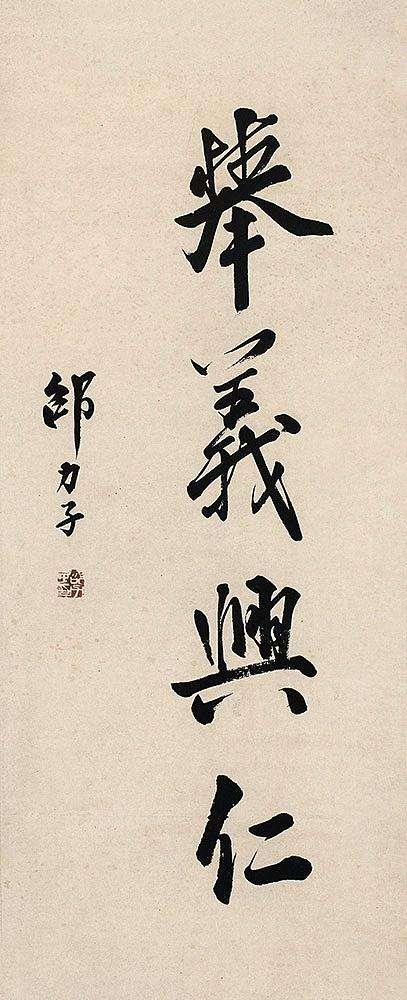 舉義興仁
邵力子